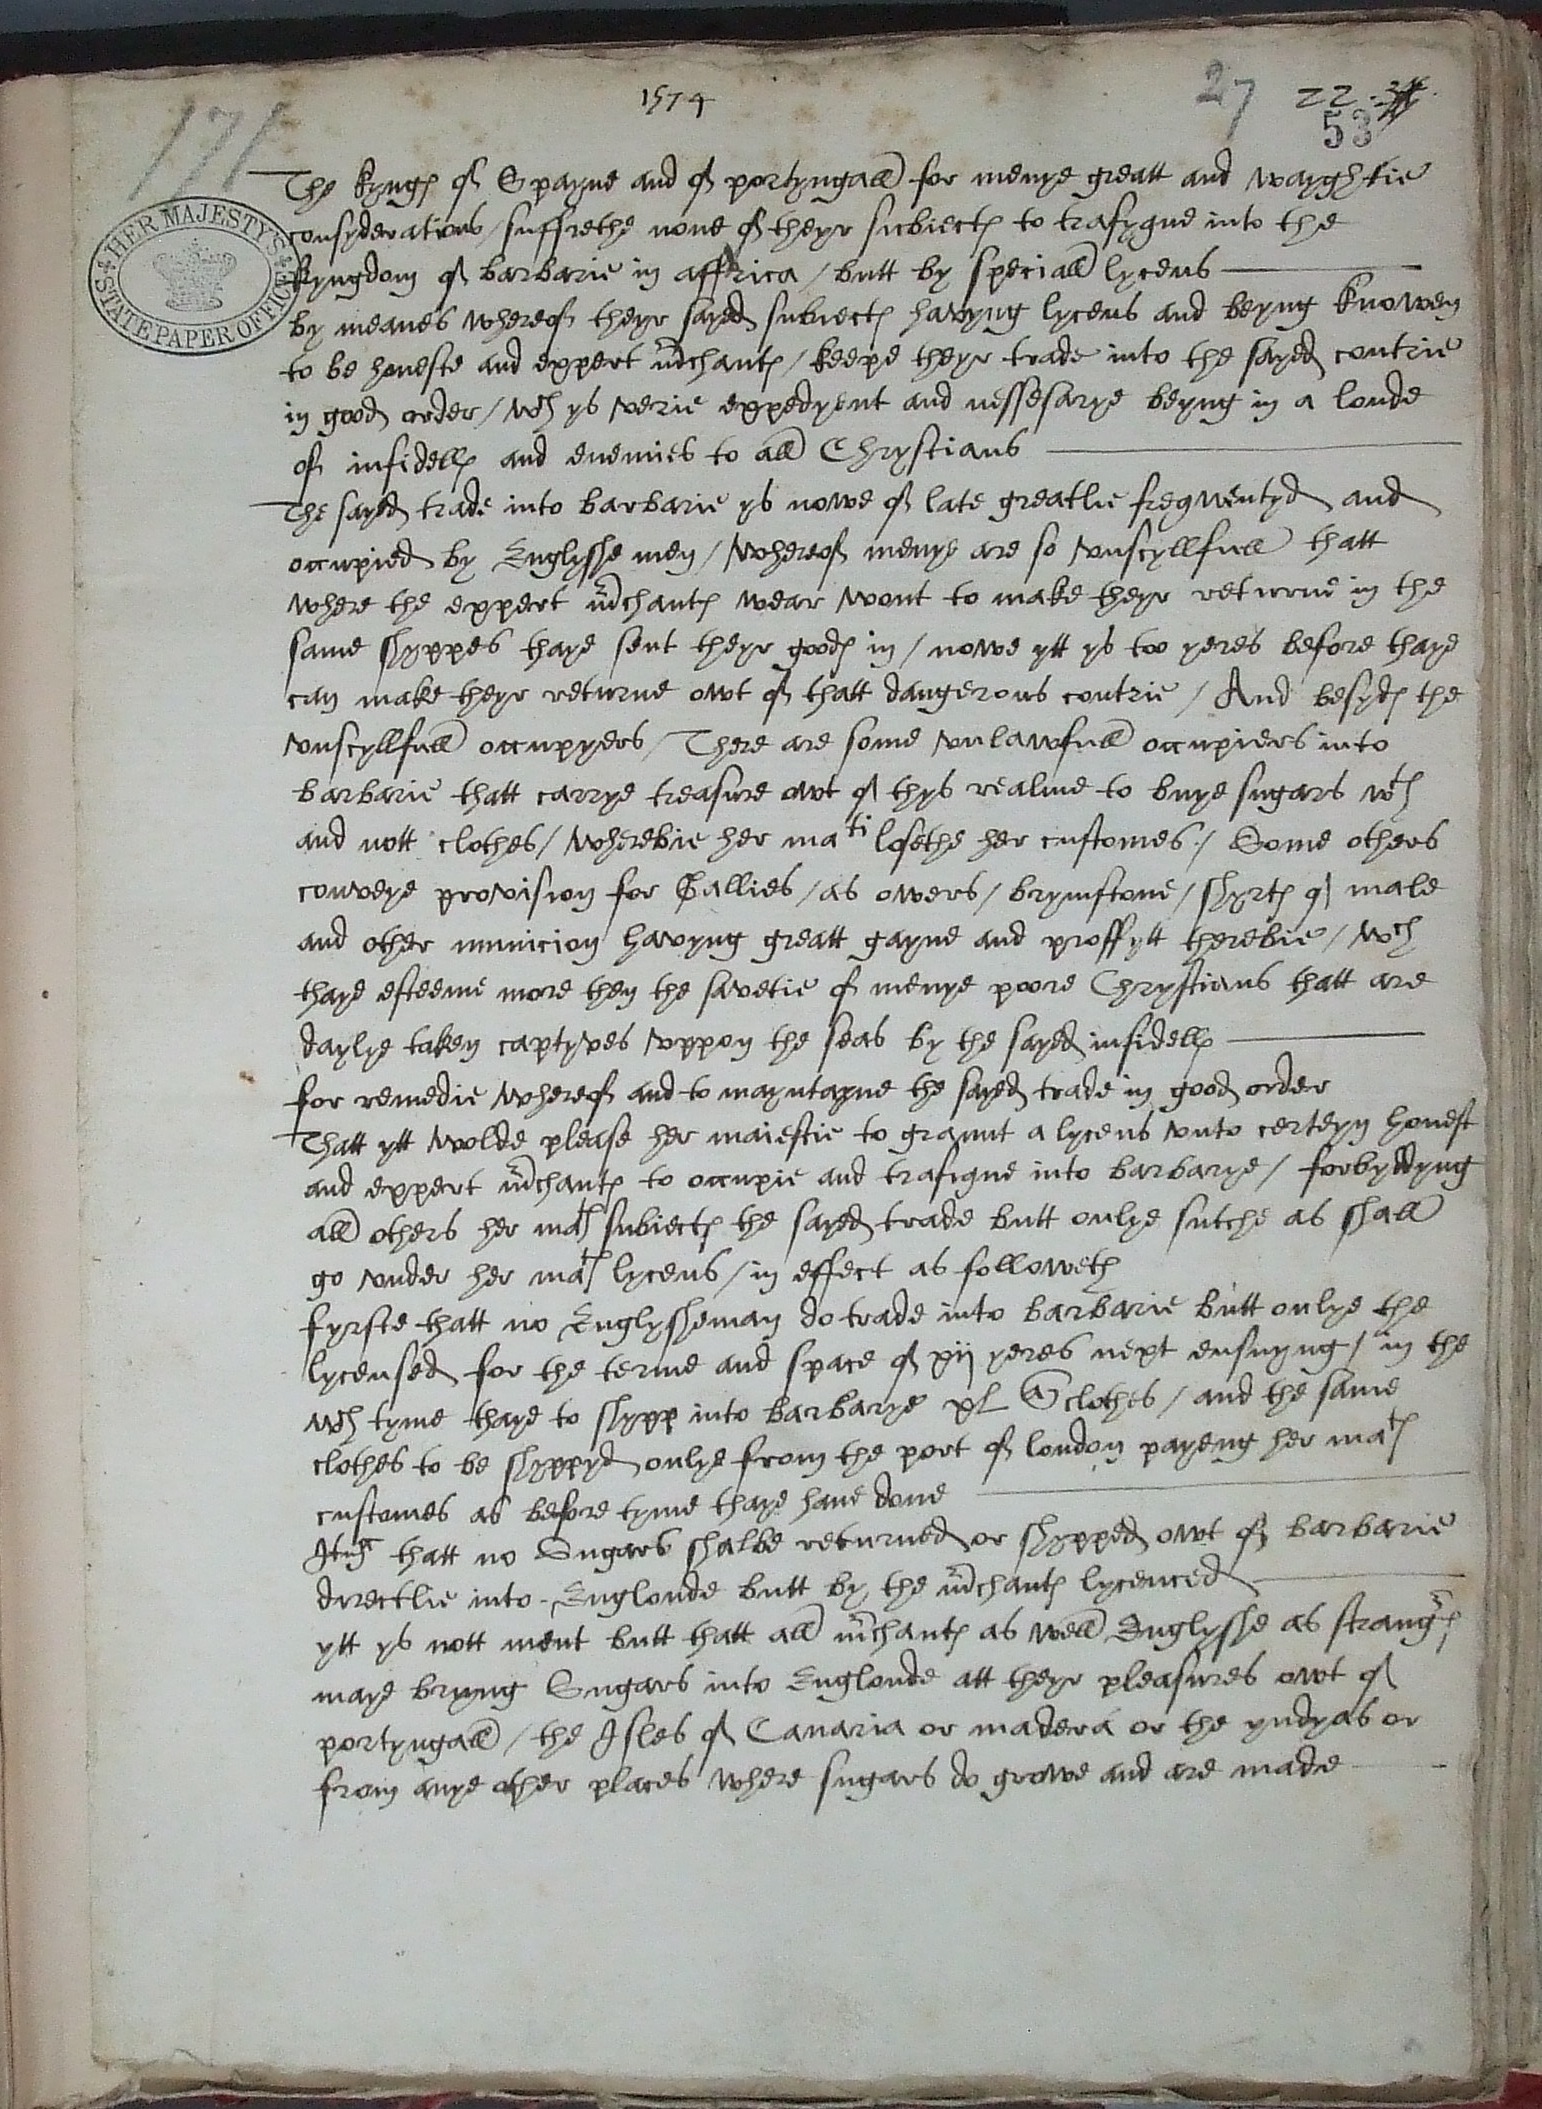 1574
27 22
53
171
HER MAJESTY'S STATE PAPER OFFICE
The kynges of Spayne and of portyngall for menye greatt and wayghtie
consyderations / suffrethe none of theyr subiectes to trafyque into the
kyngdom of barbarie in afferica / butt by speciall lycens
by meanes whereof theyr sayed subiectes havyng lycens and beyng knowen
to be honeste and expert mchantes / keepe theyr trade into the sayed contrie
in good order / wch ys verie expedyent and nessesarye beyng in a londe
of infidelles and enemies to all Chrystians
The sayed trade into barbarie ys nowe of late greatlie freqwentyd and
occupied by Englysshe men / whereof menye are so vnscyllfull thatt
where the expert mchantes wear wont to make theyr returne in the
same shyppes thaye sent theyr goodes in / nowe ytt ys too yeres before thaye
can make theyr returne owt of thatt dangerous contrie / And besydes the
vnscyllfull occupyers / There are some vnlawfull occupiers into
barbarie thatt carrye treasure owt of thys realme to buye sugars wth
and nott clothes / wherebie her mati losethe her customes / Some others
conveye provision for Gallies / as owers / brymstone / shyrtes of male
and other municion havyng greatt gayne and proffytt therebie / wch
thaye esteeme more then the savetie of menye poore Chrystians thatt are
daylye taken captyves vppon the seas by the sayed infidelles
for remedie whereof and to mayntayne the sayed trade in good order
Thatt ytt wolde please her maiestie to graunt a lycens vnto certeyn honest
and expert mchantes to occupie and trafique into barbarye / forbyddyng
all others her mates subiectes the sayed trade butt onlye sutche as shall
go vnder her mates lycens / in effect as followeth
fyrste thatt no Englyssheman do trade into barbarie butt onlye the
lycensed for the terme and space of xij yeres next ensuyng / in the
wch tyme thaye to shypp into barbarye xl M clothes / and the same
clothes to be shyppyd onlye from the port of london payeng her mates
customes as before tyme thaye have done
Itm thatt no Sugars shalbe returned or shypped owt of barbarie
directlie into Englonde butt by the mchantes lycenced
ytt ys nott ment butt thatt all mchantes as well Englysshe as strangres
maye bryng Sugars into Englonde att theyr pleasures owt of
portyngall / the Isles of Canaria or madera or the yndyas or
from anye other places where sugars do growe and are made